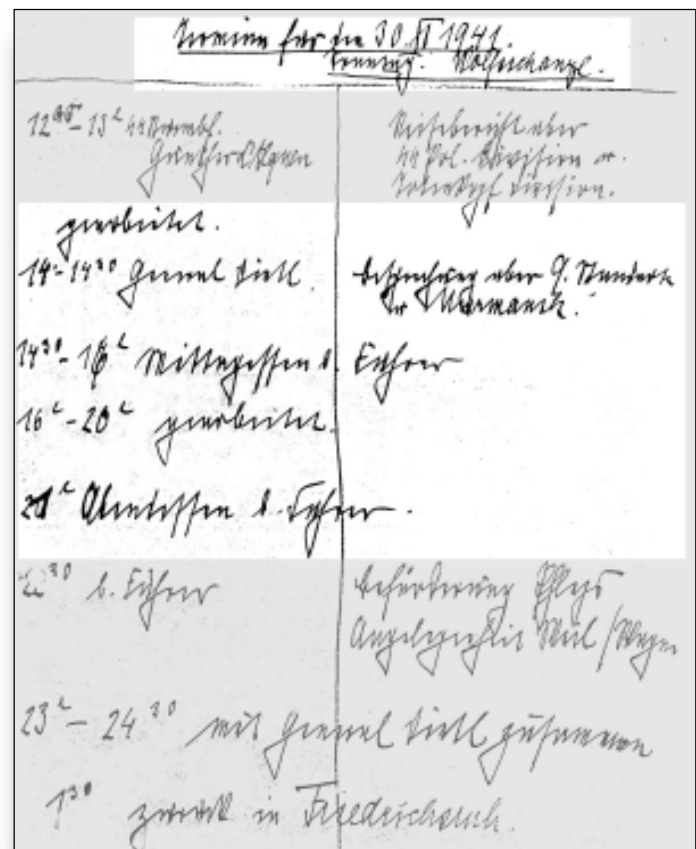 Termine für den 30 XI 1941
Sonntag. Wolfschanze.
12 – 13ᵘ
Gunther d'Alquen
Reisebericht über
SS Pol. Division u.
Totenkopf Division.
gearbeitet.
14 – 14³⁰ General Dietl.
Besprechung über 9. Standarte
Murmansk.
14³⁰ – 16ᵘ Mittagessen b. Führer
16ᵘ – 20ᵘ gearbeitet.
20ᵘ Abendessen b. Führer.
22³⁰ b. Führer
Beförderung Phleps
Angelegenheit
23ᵘ – 24³⁰ mit General Dietl zusammen
1³⁰ zurück in Friedrichsruh.